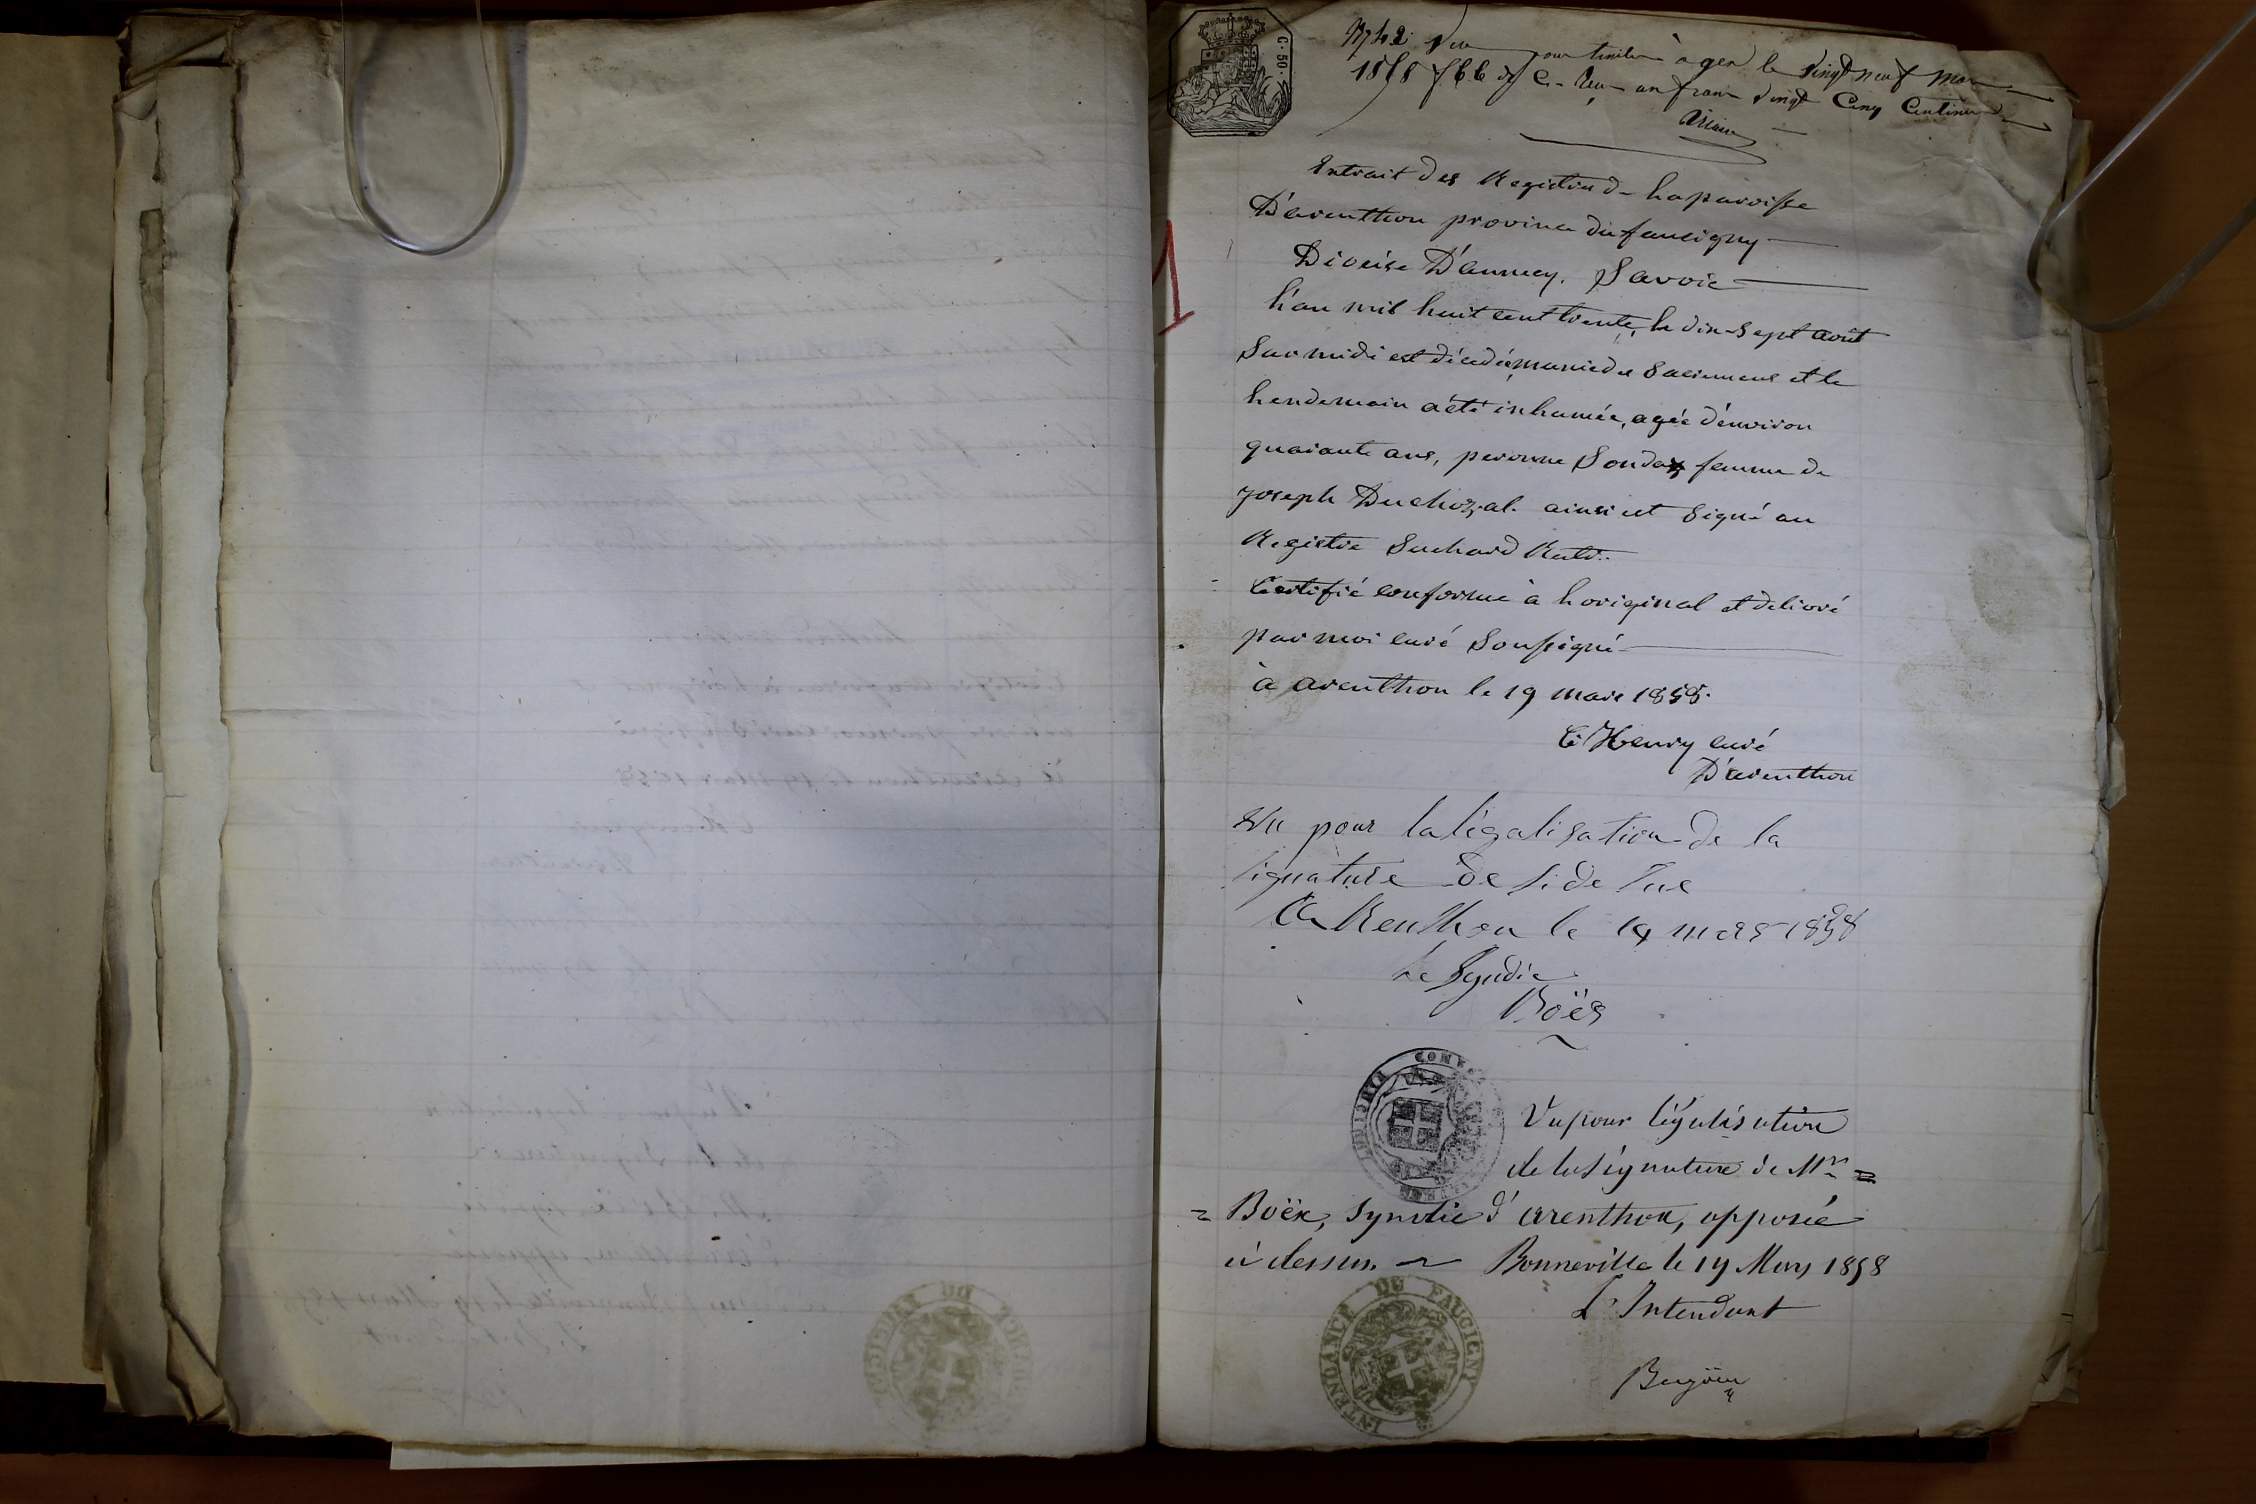 C. 50.
pour timbre à agen le vingt neuf mars
1858 f. 66 un franc vingt Cinq Centimes
Extrait des Registres de la paroisse
D'arenthon province du faucigny
Diocèse D'annecy. Savoie
L'an mil huit cent trente, le dix-sept août
Sur midi est décédée, munie des Sacremens et le
lendemain a été inhumée, agée d'environ
quarante ans, peronne Sondaz femme de
joseph Duchozal. ainsi est Signé au
Registre Suchard Rect..
Certifié conforme à L'original et delivré
par moi curé Soussigné
à arenthon le 19 mars 1858.
C. Henry curé
D'arenthon
Vu pour la légalisation de la
signature de
Arenthon le 19 mars 1858
Le Syndic
Boëx
Vu pour légalisation
de la signature de Mr =
= Boëx, Syndic d'arenthon, apposée
ci dessus. Bonneville le 19 Mars 1858
L'Intendant
INTENDANCE DU FAUCIGNY
1